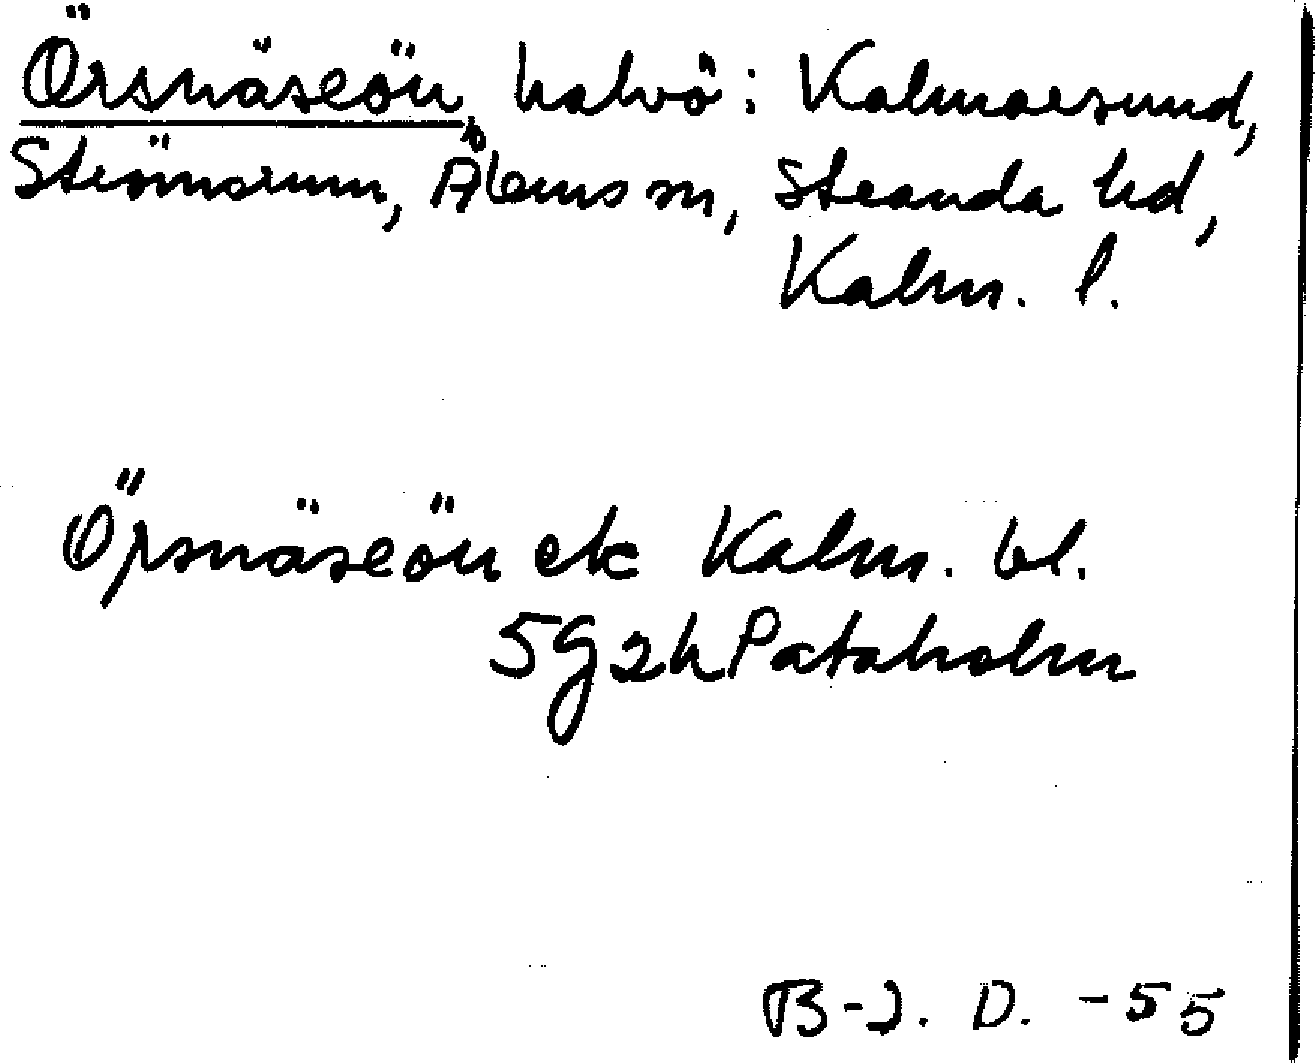 Örsnäseön, halvö: Kalmarsund,
Strömsrum, Ålems sn, Stranda hd,
Kalm. l.
Örsnäseön ek Kalm. bl.
5g2h Pataholm
B-J. D. -55